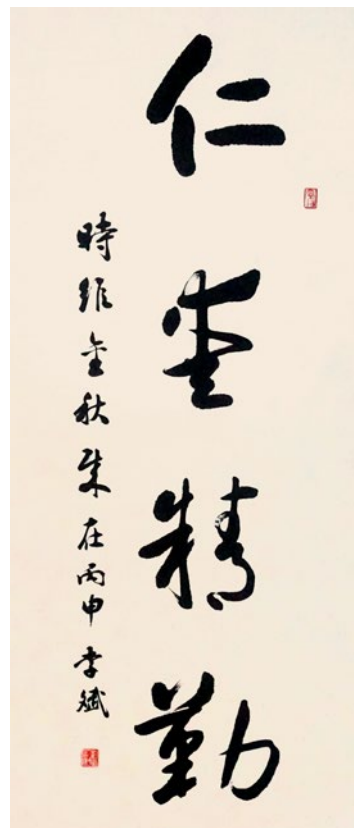 仁愛精勤
時維金秋歲在丙申李斌